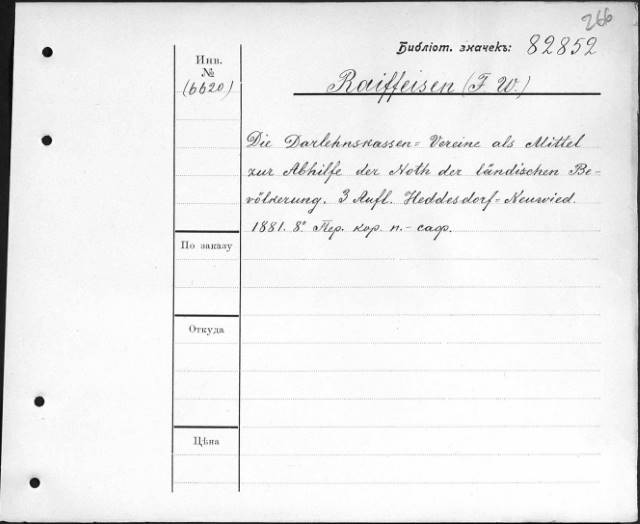 266
Библіот. значекъ: 82852
Инв.
№
(6620)
Raiffeisen (F W.)
Die Darlehnskassen=Vereine als Mittel
zur Abhilfe der Noth der ländischen Be-
völkerung. 3 Aufl. Heddesdorf=Neuwied.
1881. 8° Пер. кор. п.-саф.
По заказу
Откуда
Цѣна